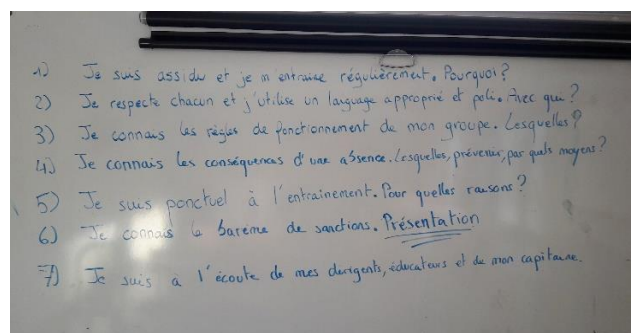 1) Je suis assidu et je m'entraine régulièrement. Pourquoi?
2) Je respecte chacun et j'utilise un language approprié et poli. Avec qui?
3) Je connais les règles de fonctionnement de mon groupe. Lesquelles?
4) Je connais les conséquences d'une absence. Lesquelles, prévenir, par quels moyens?
5) Je suis ponctuel à l'entrainement. Pour quelles raisons?
6) Je connais le barème de sanctions. Présentation
7) Je suis à l'écoute de mes dirigents, éducateurs et de mon capitaine.